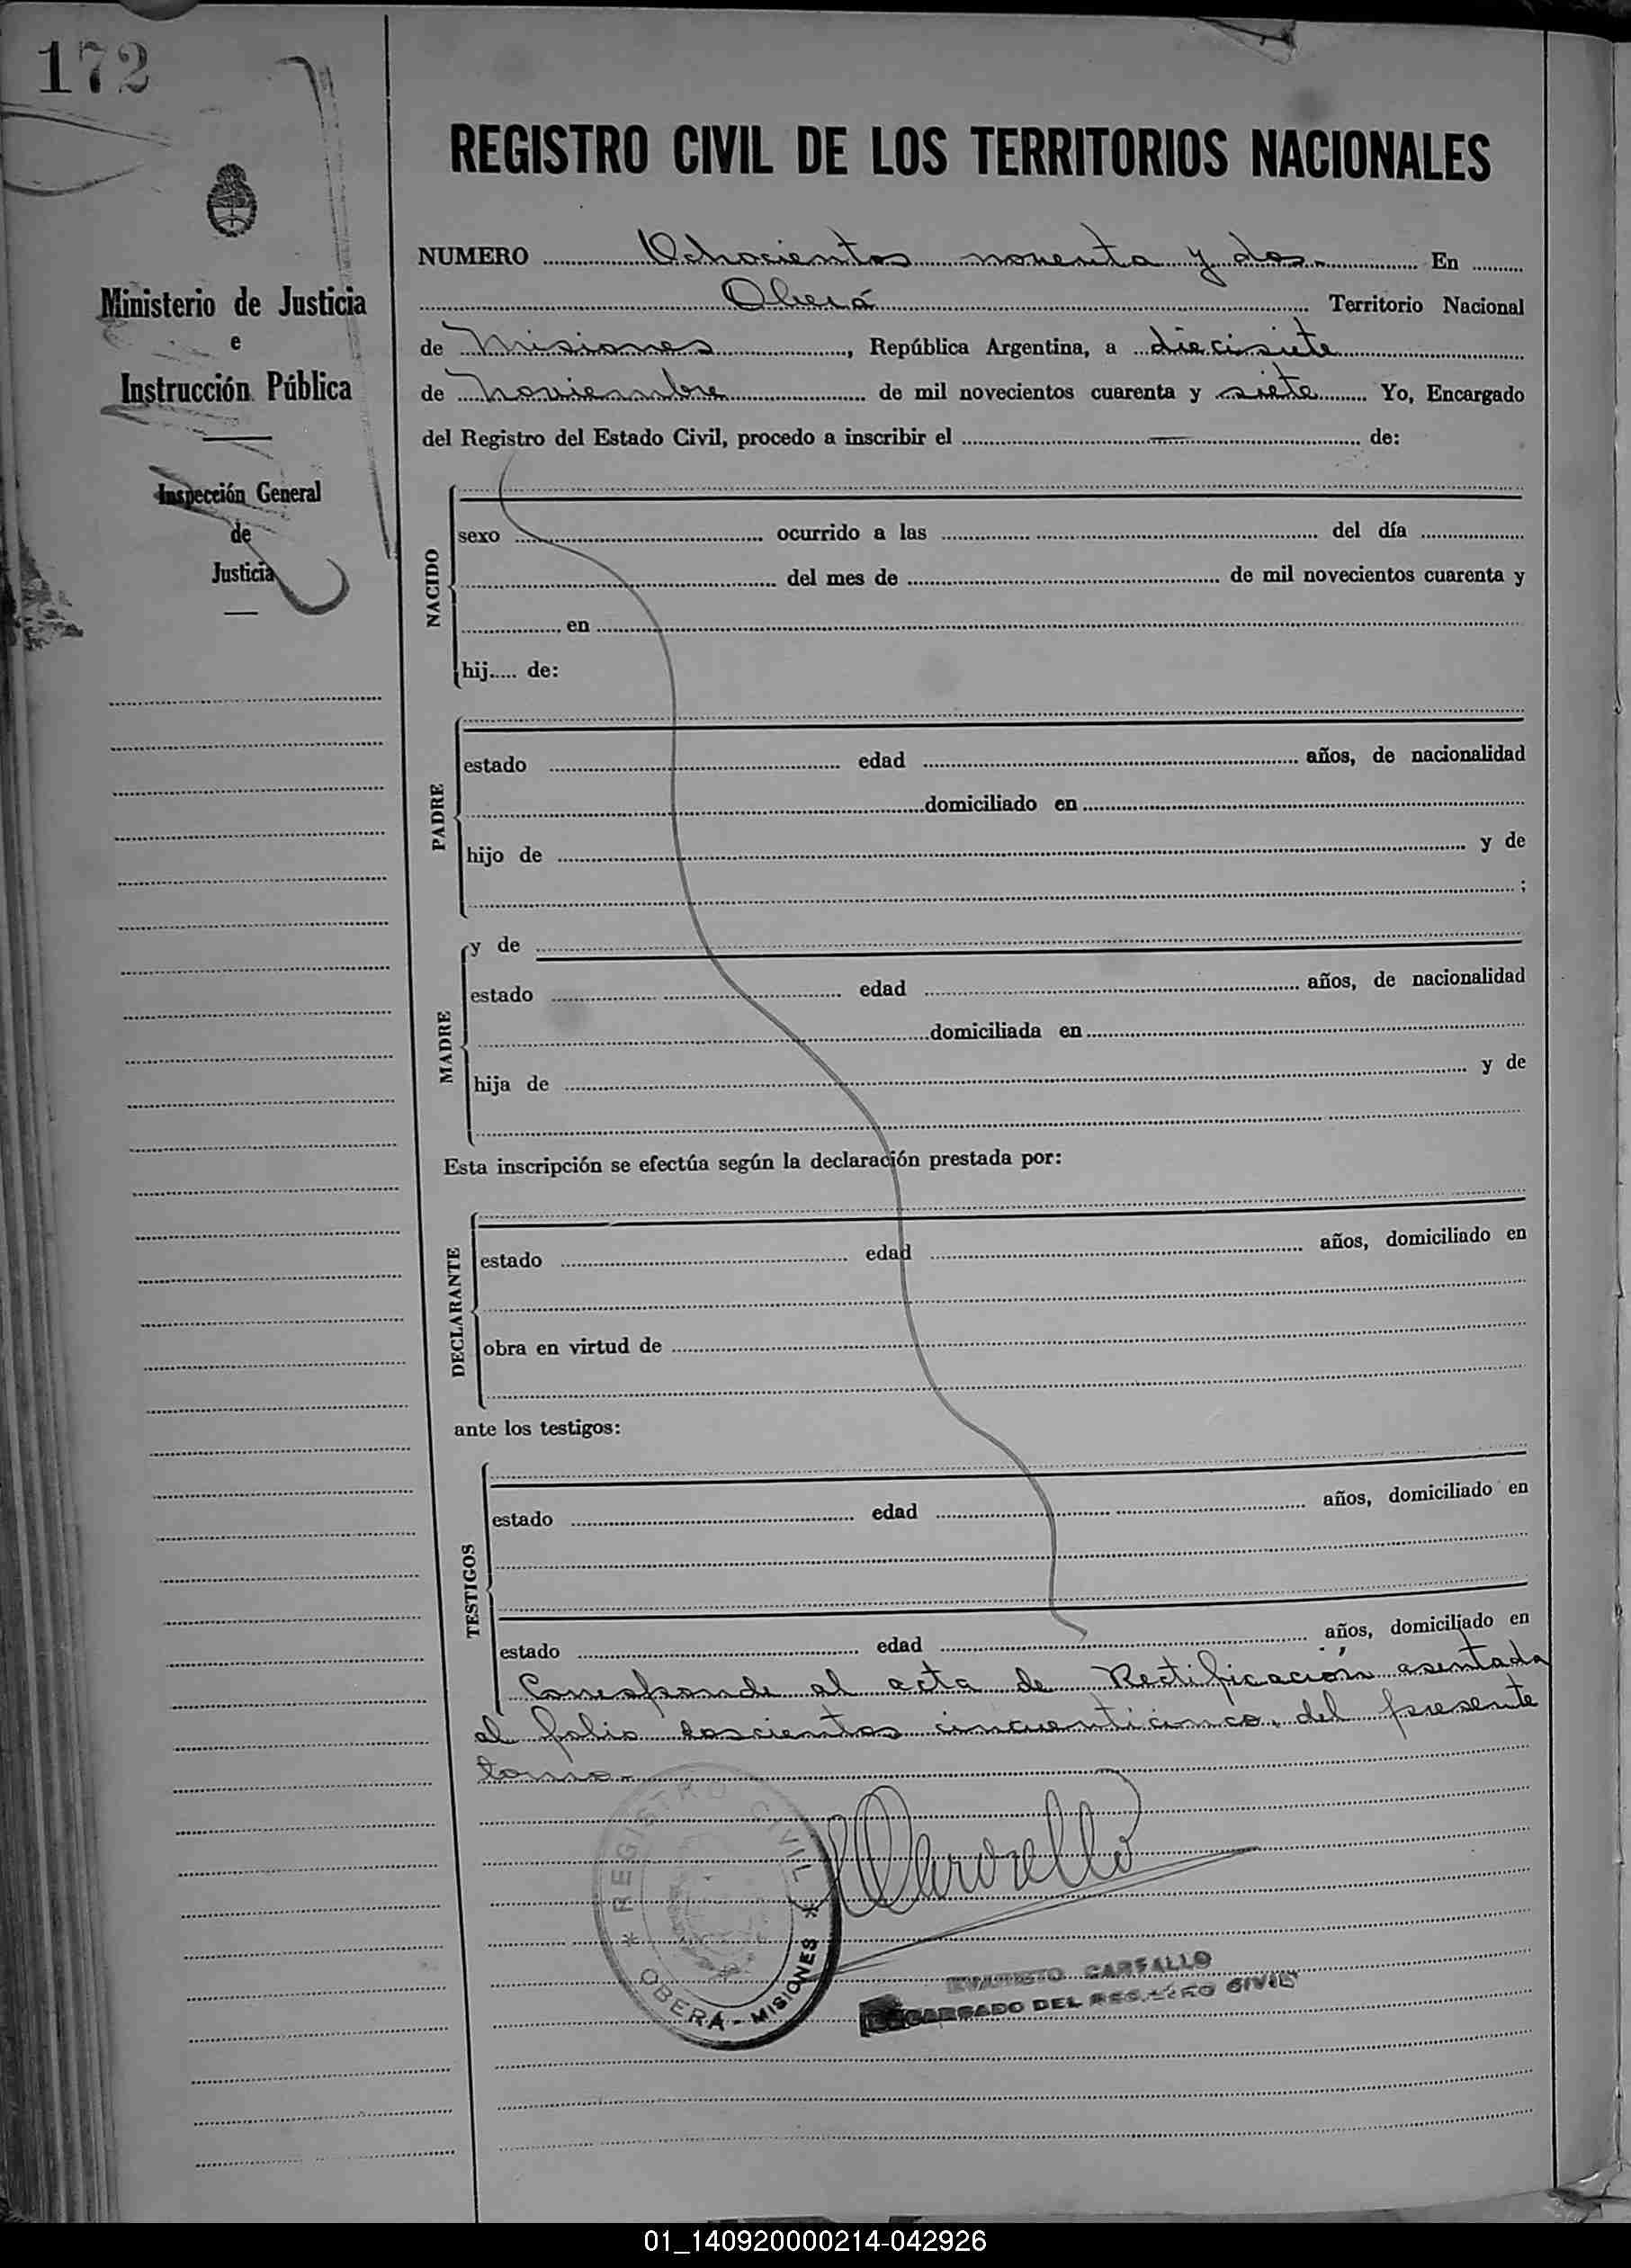 172
REGISTRO CIVIL DE LOS TERRITORIOS NACIONALES
Ministerio de Justicia
e
Instrucción Pública
Inspección General
de
Justicia
NUMERO Ochocientos noventa y dos.- En
Oberá Territorio Nacional
de Misiones, República Argentina, a diecisiete
de noviembre de mil novecientos cuarenta y siete Yo, Encargado
del Registro del Estado Civil, procedo a inscribir el — de:
NACIDO
sexo ocurrido a las del día
del mes de de mil novecientos cuarenta y
, en
hij..... de:
PADRE
estado edad años, de nacionalidad
domiciliado en
hijo de y de
;
MADRE
y de
estado edad años, de nacionalidad
domiciliada en
hija de y de
Esta inscripción se efectúa según la declaración prestada por:
DECLARANTE
estado edad años, domiciliado en
obra en virtud de
ante los testigos:
TESTIGOS
estado edad años, domiciliado en
estado edad años, domiciliado en
Corresponde al acta de Rectificación asentada
al folio doscientos cincuenticinco, del presente
tomo.-
REGISTRO CIVIL * OBERA - MISIONES *
CARBALLO
ENCARGADO DEL REGISTRO CIVIL
01_140920000214-042926